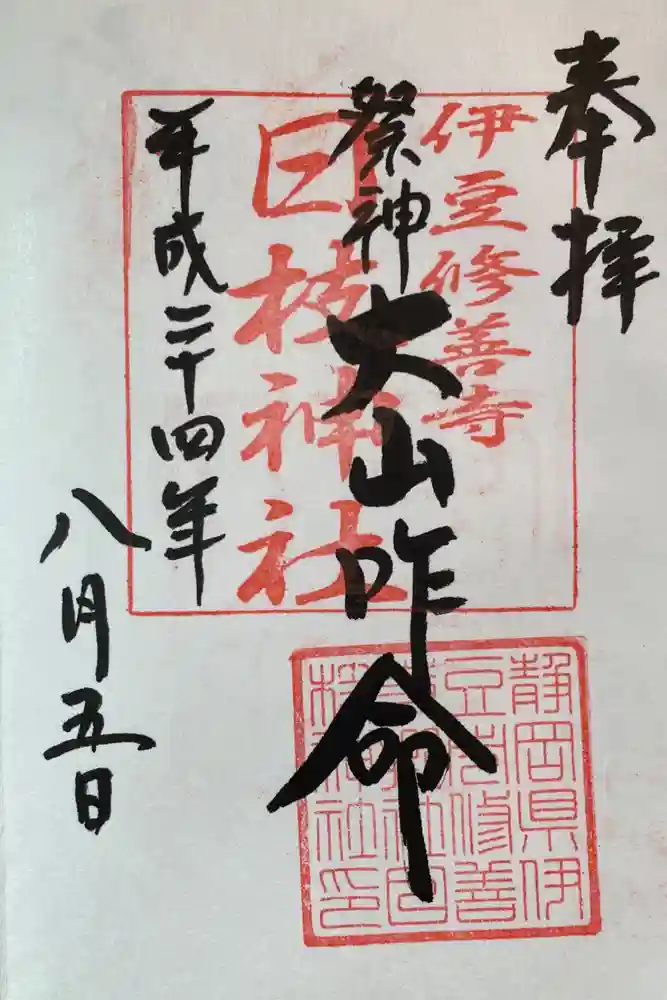 奉拝
伊豆修善寺
祭神 大山咋命
日枝神社
平成二十四年
八月五日
静岡県伊
豆市修善
枝神社印